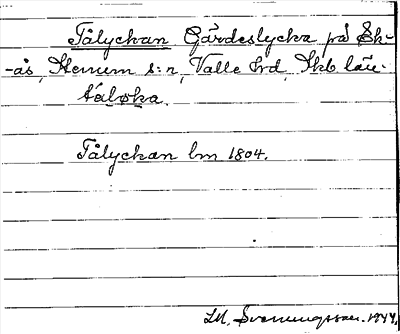 Tålyckan Gårdeslycka på Ek-
-ås, Stenum s:n, Valle hrd, Skb län.
tå̀lɵka.
Tålyckan lm 1804.
LM, Svenungsson. 1944.